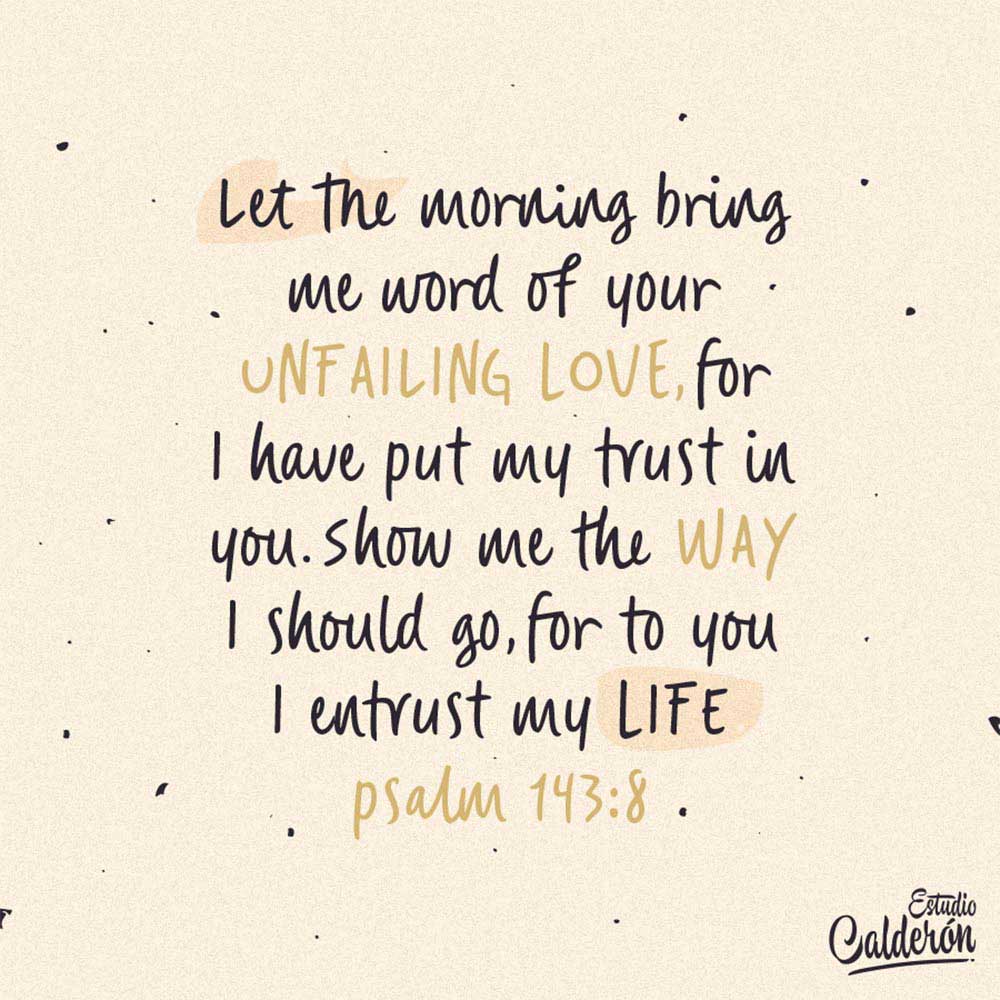 Let the morning bring
me word of your
UNFAILING LOVE, for
I have put my trust in
you. Show me the WAY
I should go, for to you
I entrust my LIFE
psalm 143:8
Estudio
Calderón